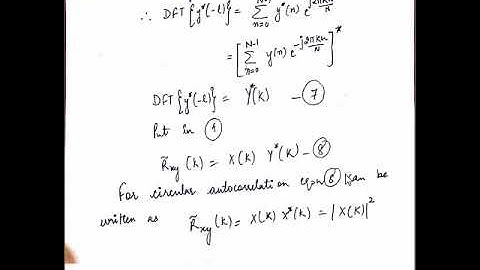 ∴ DFT{y*(-l)} = Σ_{n=0}^{N-1} y*(n) e^{j2πkn/N}
= [Σ_{n=0}^{N-1} y(n) e^{-j2πkn/N}]*
DFT{y*(-l)} = Y*(K) — ⑦
Put in ④
R̃xy(k) = X(k) Y*(K) — ⑧
For circular autocorrelation eqn ⑧ can be
written as R̃xy(k) = X(k) X*(k) = |X(k)|²